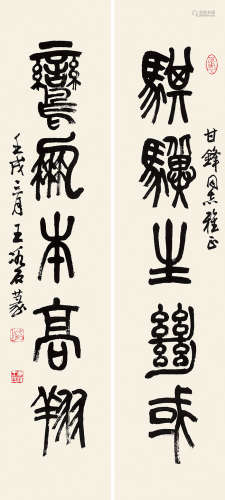 甘鋒同志雅正
騏驥生幽或
鸞鳳本高翔
壬戌三月王冰石篆